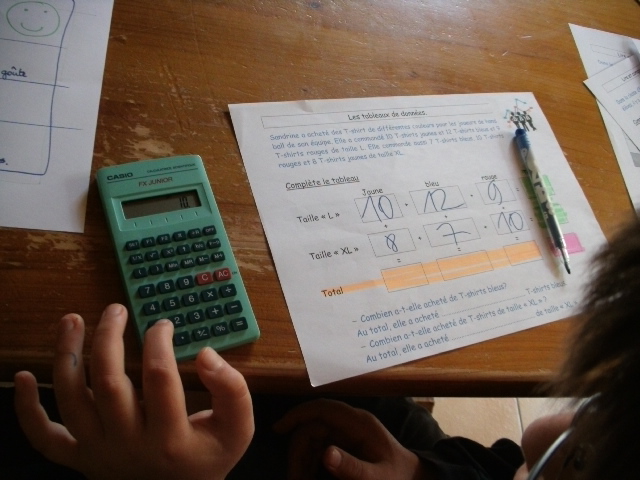 goûte
CASIO
FX JUNIOR
10
Les tableaux de données.
Sandrine a acheté des T-shirt de différentes couleurs pour les joueurs de hand
ball de son équipe. Elle a commandé 10 T-shirts jaunes et 12 T-shirts bleus et 9
T-shirts rouges de taille L. Elle commande aussi 7 T-shirts bleus, 10 T-shirts
rouges et 8 T-shirts jaunes de taille XL.
Complète le tableau
Jaune bleu rouge
Taille « L » 10 + 12 + 9 =
+ + +
Taille « XL » 8 + 7 + 10 =
= = =
Total
- Combien a-t-elle acheté de T-shirts bleus?
Au total, elle a acheté T-shirts bleus
- Combien a-t-elle acheté de T-shirts de taille « XL » ?
Au total, elle a acheté de taille « XL